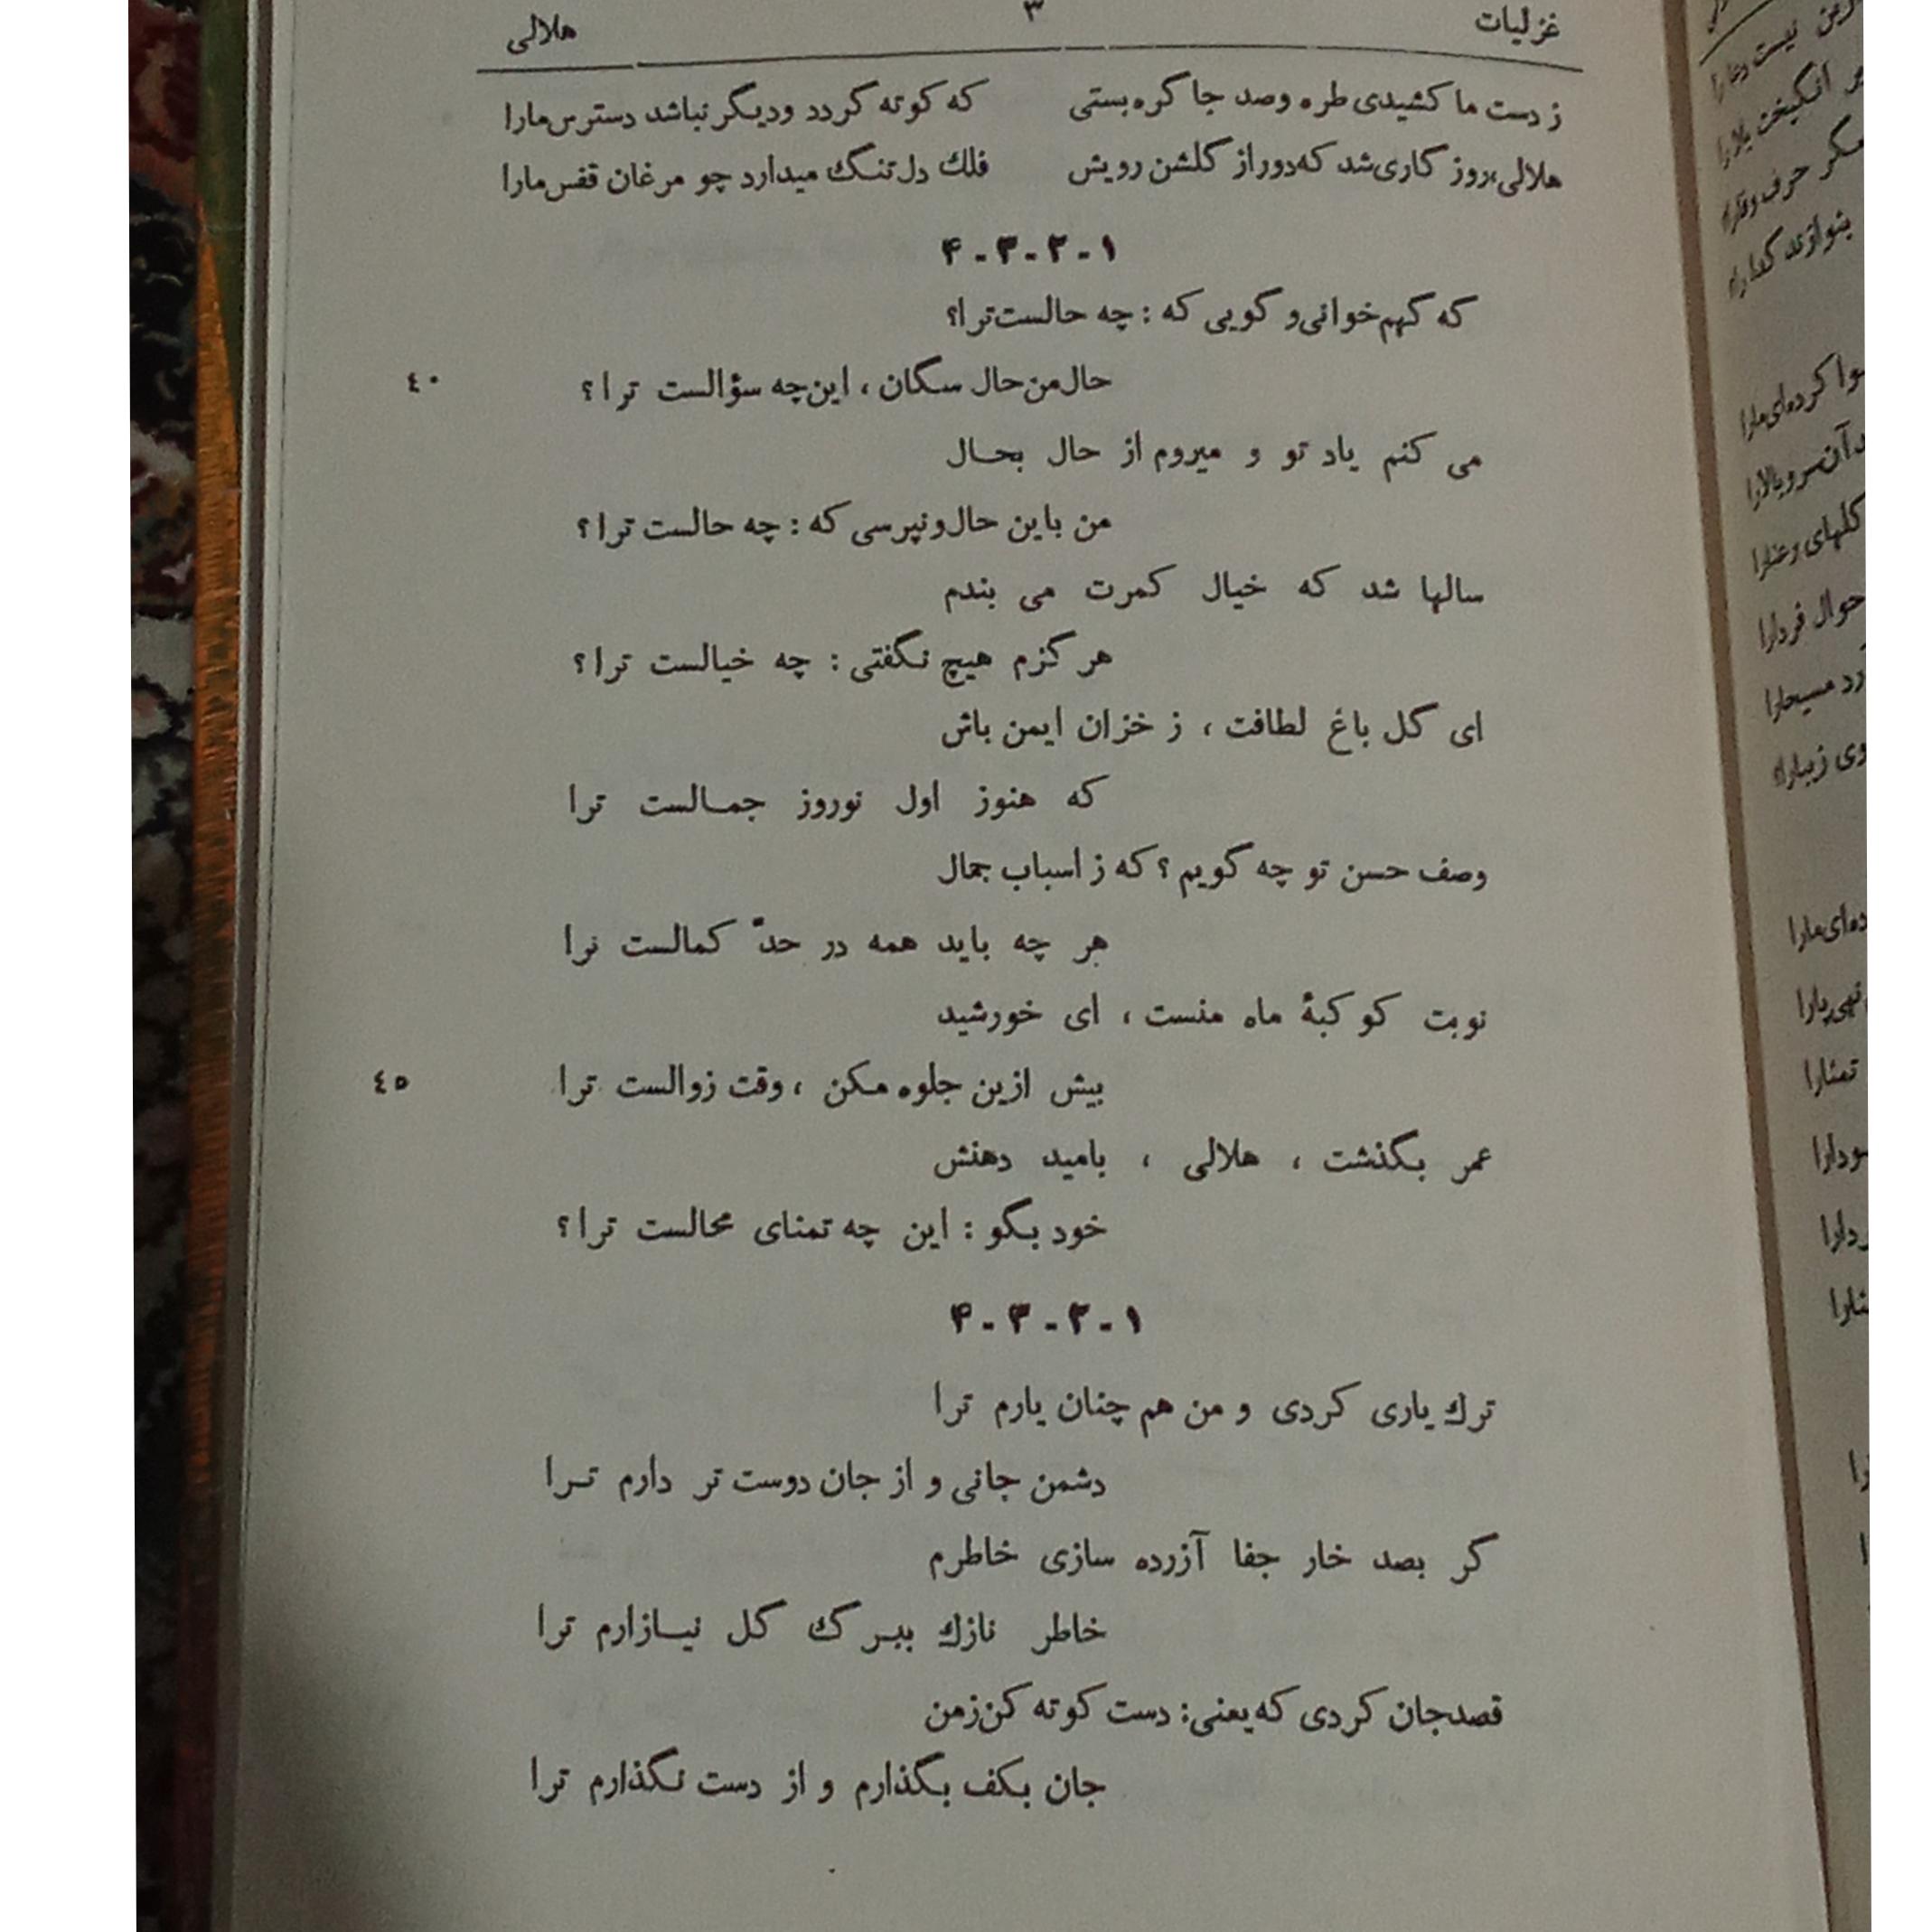 غزلیات ۳ هلالی
ز دست ما کشیدی طره وصد جا گره بستی که کوته گردد ودیگر نباشد دسترس مارا
هلالی، روز گاری شد که دور از گلشن رویش فلك دل تنگ میدارد چو مرغان قفس مارا
۱ - ۲ - ۳ - ۴
که گهم خوانی و گویی که : چه حالست ترا؟
حال من حال سگان ، این چه سؤالست ترا ؟ ٤٠
می کنم یاد تو و میروم از حال بحال
من باین حال و نپرسی که : چه حالست ترا ؟
سالها شد که خیال کمرت می بندم
هر گزم هیچ نگفتی : چه خیالست ترا ؟
ای گل باغ لطافت ، ز خزان ایمن باش
که هنوز اول نوروز جمالست ترا
وصف حسن تو چه گویم ؟ که ز اسباب جمال
هر چه باید همه در حدّ کمالست ترا
نوبت کوکبهٔ ماه منست ، ای خورشید
بیش ازین جلوه مکن ، وقت زوالست ترا ٤٥
عمر بگذشت ، هلالی ، بامید دهنش
خود بگو : این چه تمنای محالست ترا ؟
۱ - ۲ - ۳ - ۴
ترك یاری کردی و من هم چنان یارم ترا
دشمن جانی و از جان دوست تر دارم ترا
گر بصد خار جفا آزرده سازی خاطرم
خاطر نازك ببرگ گل نیازارم ترا
قصد جان کردی که یعنی: دست کوته کن زمن
جان بکف بگذارم و از دست نگذارم ترا